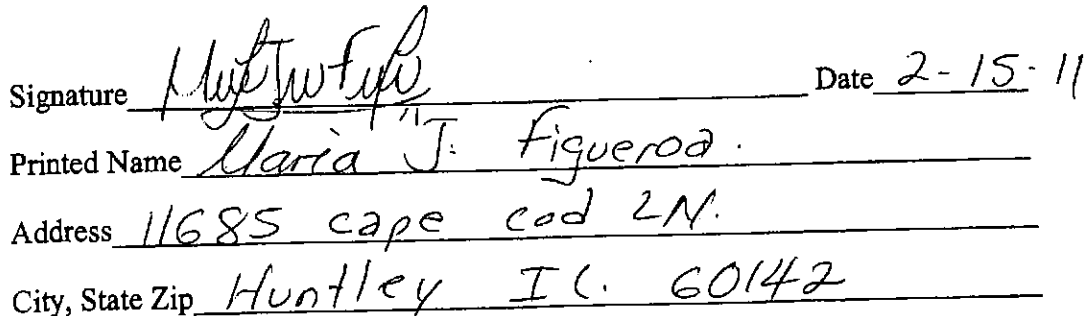 Signature Date 2-15-11
Printed Name Maria J. Figueroa.
Address 11685 cape cod LN.
City, State Zip Huntley IL. 60142